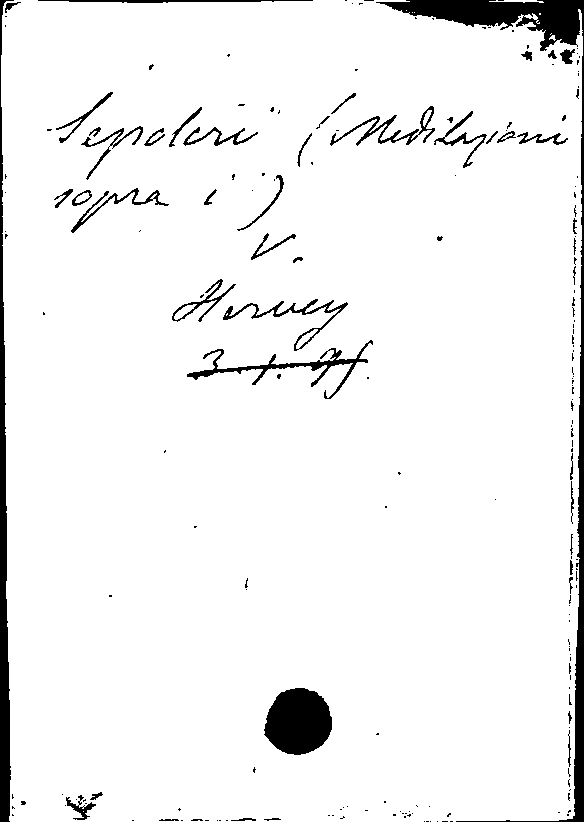 Sepolcri (Meditazioni
sopra i)
V.
Hervey
3. 1. 9f